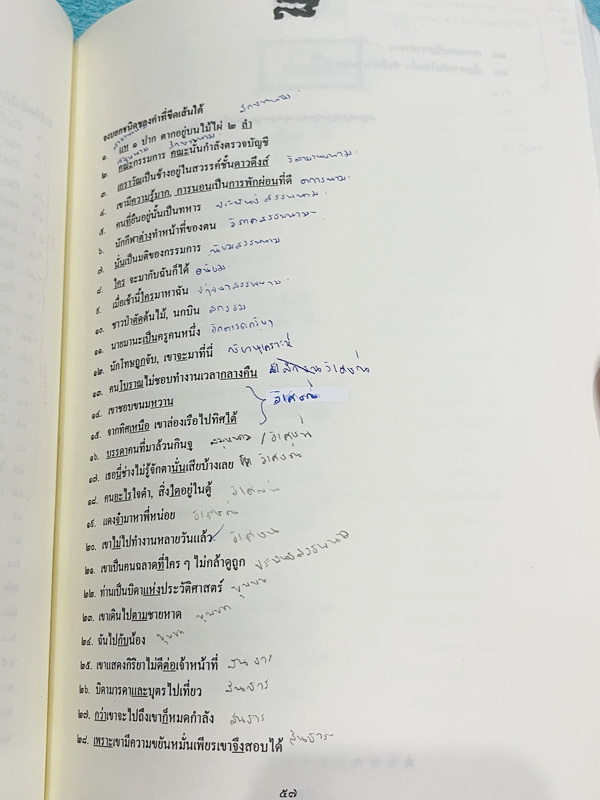 จงบอกชนิดของคำที่ขีดเส้นใต้
๑. แห ๑ ปาก ตากอยู่บนไม้ไผ่ ๒ ลำ ลักษณนาม
๒. คณะกรรมการ คณะนั้นกำลังตรวจบัญชี
๓. เอราวัณเป็นช้างอยู่ในสวรรค์ชั้นดาวดึงส์ วิสามานยนาม
๔. เขามีความรู้มาก, การนอนเป็นการพักผ่อนที่ดี อาการนาม
๕. คนที่ยืนอยู่นั้นเป็นทหาร ประพันธสรรพนาม
๖. นักกีฬาต่างทำหน้าที่ของตน วิภาคสรรพนาม
๗. นั่นเป็นมติของกรรมการ นิยมสรรพนาม
๘. ใคร จะมากับฉันก็ได้ อนิยม
๙. เมื่อเช้านี้ใครมาหาฉัน ปฤจฉาสรรพนาม
๑๐. ชาวป่าตัดต้นไม้, นกบิน สกรรม
๑๑. นายมานะเป็นครูคนหนึ่ง วิกตรรถกริยา
๑๒. นักโทษถูกจับ, เขาจะมาที่นี่ กริยานุเคราะห์
๑๓. คนโบราณไม่ชอบทำงานเวลากลางคืน วิเศษณ์
๑๔. เขาชอบขนมหวาน
วิเศษณ์
๑๕. จากทิศเหนือ เขาล่องเรือไปทิศใต้
๑๖. บรรดาคนที่มาล้วนกินจุ สมุหนาม / วิเศษณ์
๑๗. เธอนี่ช่างไม่รู้จักตานั่นเสียบ้างเลย วิเศษณ์
๑๘. คนอะไรใจดำ, สิ่งใดอยู่ในตู้ วิเศษณ์
๑๙. แดงจ๋ามาหาพี่หน่อย วิเศษณ์
๒๐. เขาไม่ไปทำงานหลายวันแล้ว วิเศษณ์
๒๑. เขาเป็นคนฉลาดที่ใคร ๆ ไม่กล้าดูถูก ประพันธสรรพนาม
๒๒. ท่านเป็นบิดาแห่งประวัติศาสตร์ บุพบท
๒๓. เขาเดินไปตามชายหาด บุพบท
๒๔. ฉันไปกับน้อง บุพบท
๒๕. เขาแสดงกิริยาไม่ดีต่อเจ้าหน้าที่ สันธาน
๒๖. บิดามารดาและบุตรไปเที่ยว สันธาน
๒๗. กว่าเขาจะไปถึงเขาก็หมดกำลัง สันธาน
๒๘. เพราะเขามีความขยันหมั่นเพียรเขาจึงสอบได้ สันธาน
๕๗